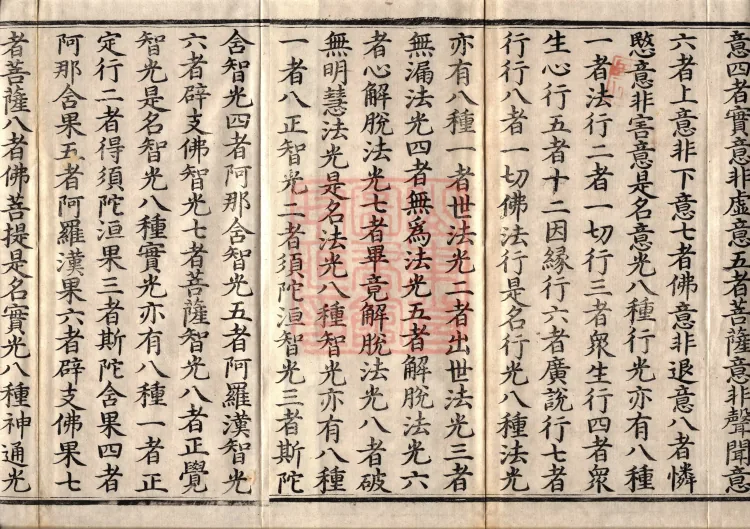 意四者實意非虛意五者菩薩意非聲聞意
六者上意非下意七者佛意非退意八者憐
愍意非害意是名意光八種行光亦有八種
一者法行二者一切行三者衆生行四者衆
生心行五者十二因緣行六者廣說行七者
行行八者一切佛法行是名行光八種法光
亦有八種一者世法光二者出世法光三者
無漏法光四者無爲法光五者解脫法光六
者心解脫法光七者畢竟解脫法光八者破
無明慧法光是名法光八種智光亦有八種
一者八正智光二者須陀洹智光三者斯陀
含智光四者阿那含智光五者阿羅漢智光
六者辟支佛智光七者菩薩智光八者正覺
智光是名智光八種實光亦有八種一者正
定行二者得須陀洹果三者斯陀含果四者
阿那含果五者阿羅漢果六者辟支佛果七
者菩薩八者佛菩提是名實光八種神通光